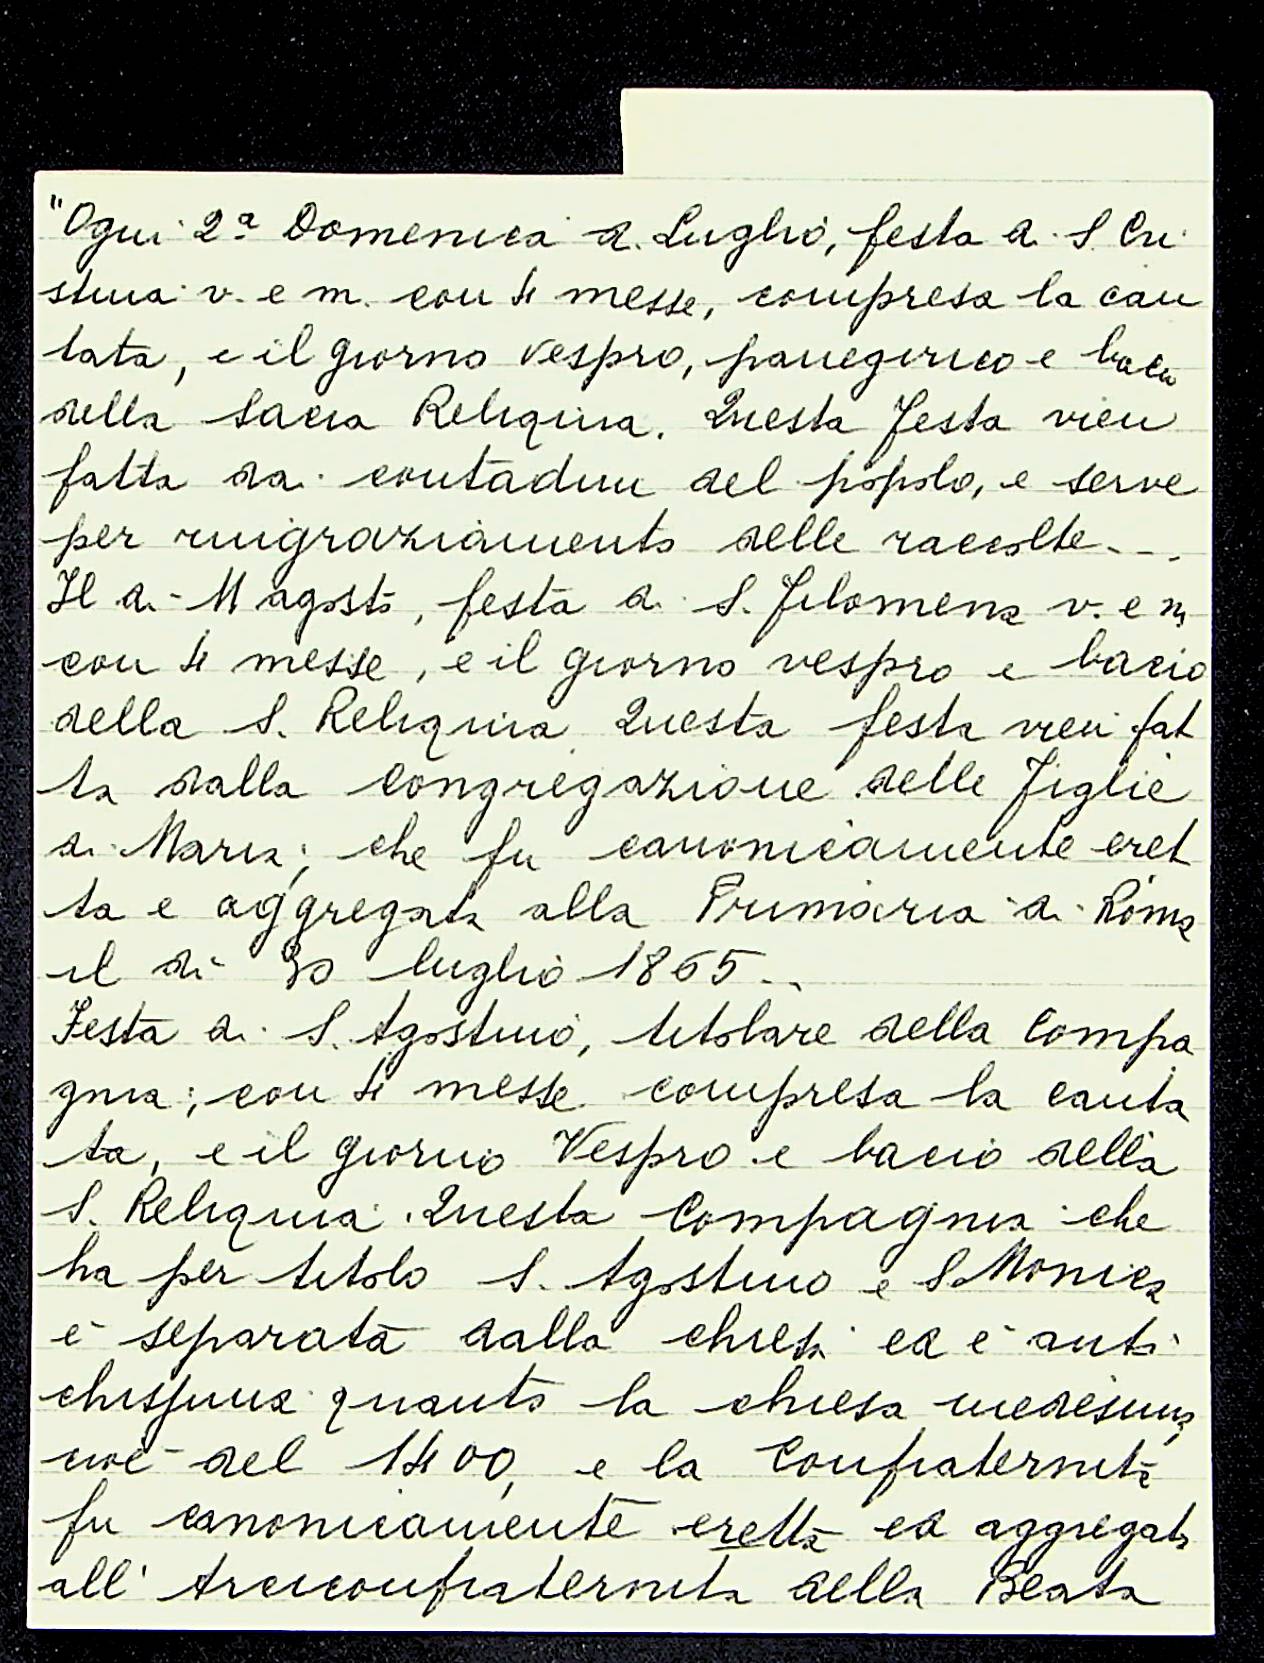 "Ogni 2ª Domenica di Luglio, festa di S. Cri
stina v. e m. con 4 messe, compresa la can
tata, e il giorno Vespro, panegirico e bacio
della Sacra Reliquia. Questa Festa vien
fatta dai contadini del popolo, e serve
per ringraziamento delle raccolte...
Il dì 11 agosto, festa di S. Filomena v. e m
con 4 messe, e il giorno vespro e bacio
della S. Reliquia. Questa festa vien fat
ta dalla Congregazione delle Figlie
di Maria; che fu canonicamente eret
ta e aggregata alla Primaria di Roma
il dì 30 luglio 1865...
Festa di S. Agostino, titolare della Compa
gnia; con 4 messe compresa la canta
ta, e il giorno Vespro e bacio della
S. Reliquia. Questa Compagnia che
ha per titolo S. Agostino e S. Monica
è separata dalla chiesa ed è anti
chissima quanto la chiesa medesima,
cioè del 1400, e la Confraternità
fu canonicamente eretta ed aggregata
all'Arciconfraternita della Beata